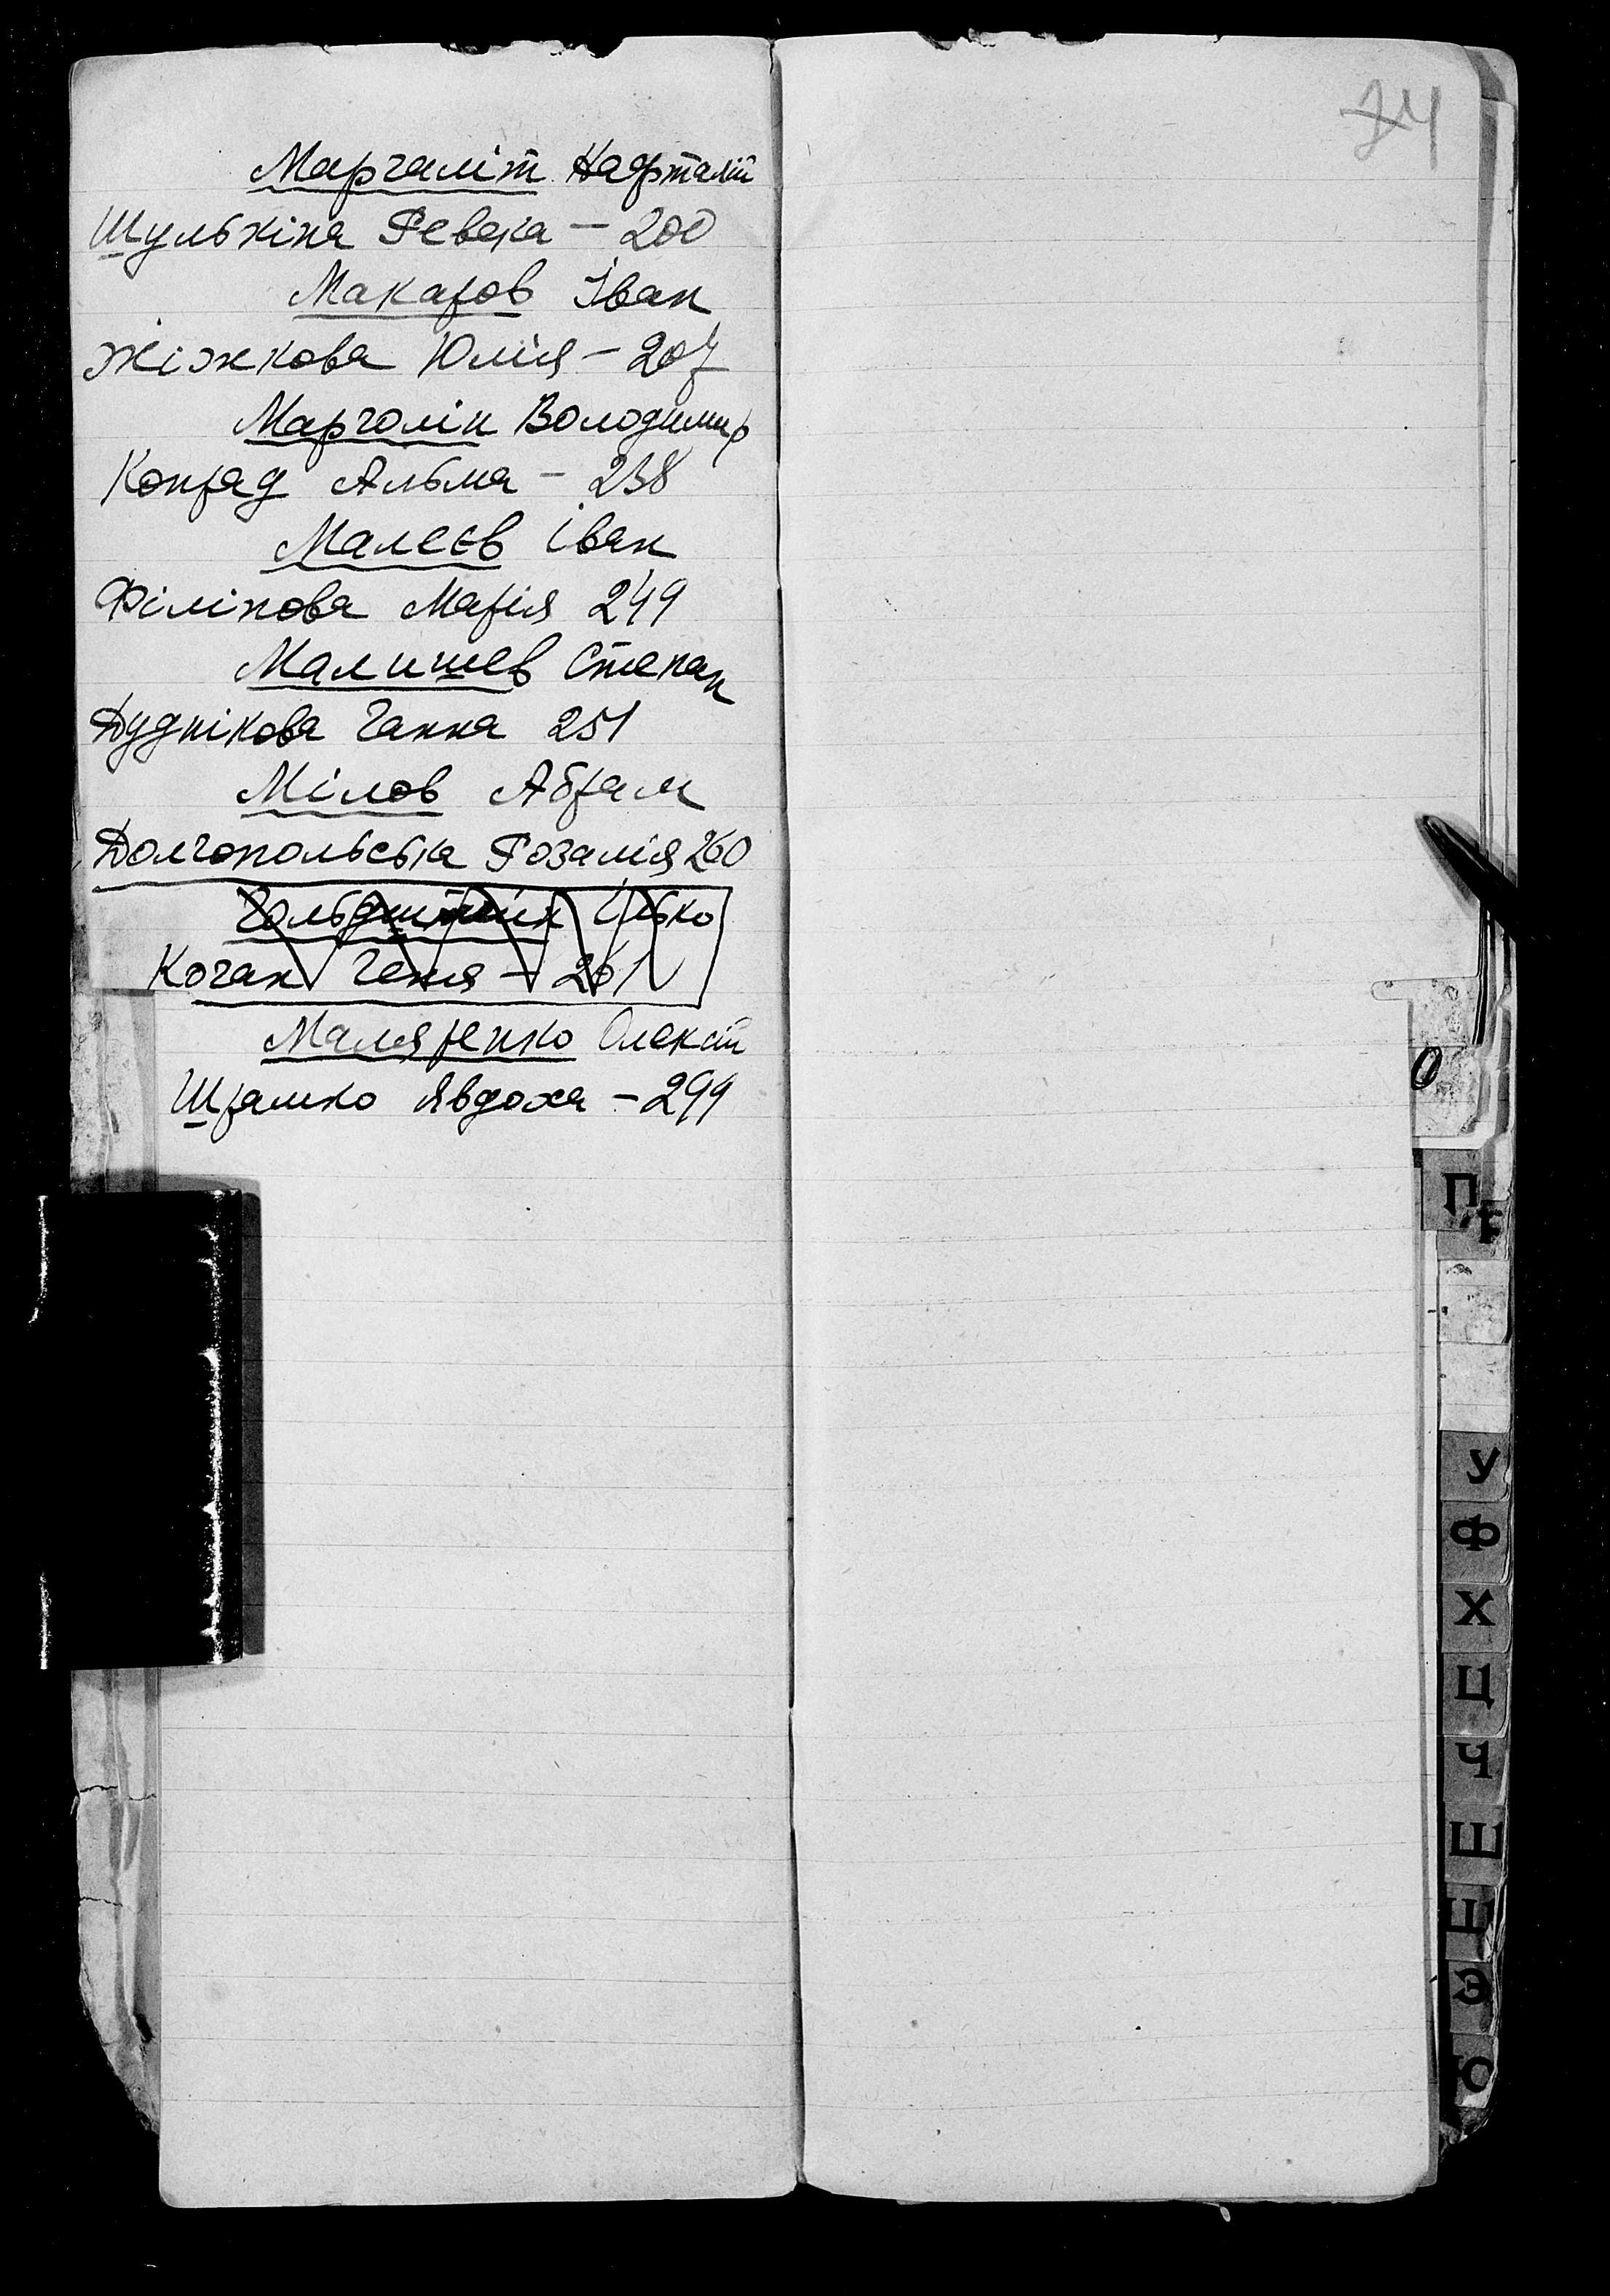 Маргаліт Нафталій
Шулькіна Ревека — 200
Макаров Іван
Жіжкова Юлія — 207
Марголін Володимир
Конрад Альма — 238
Малєєв Іван
Філіпова Марія 249
Малишев Степан
Дуднікова Ганна 251
Мілов Абрам
Долгопольська Розалія 260
Ілько
Коган Геня — 261
Маляренко Олексій
Шрамко Явдоха — 299
74
О
П
У
Ф
Х
Ц
Ч
Ш
Щ
Э
Ю